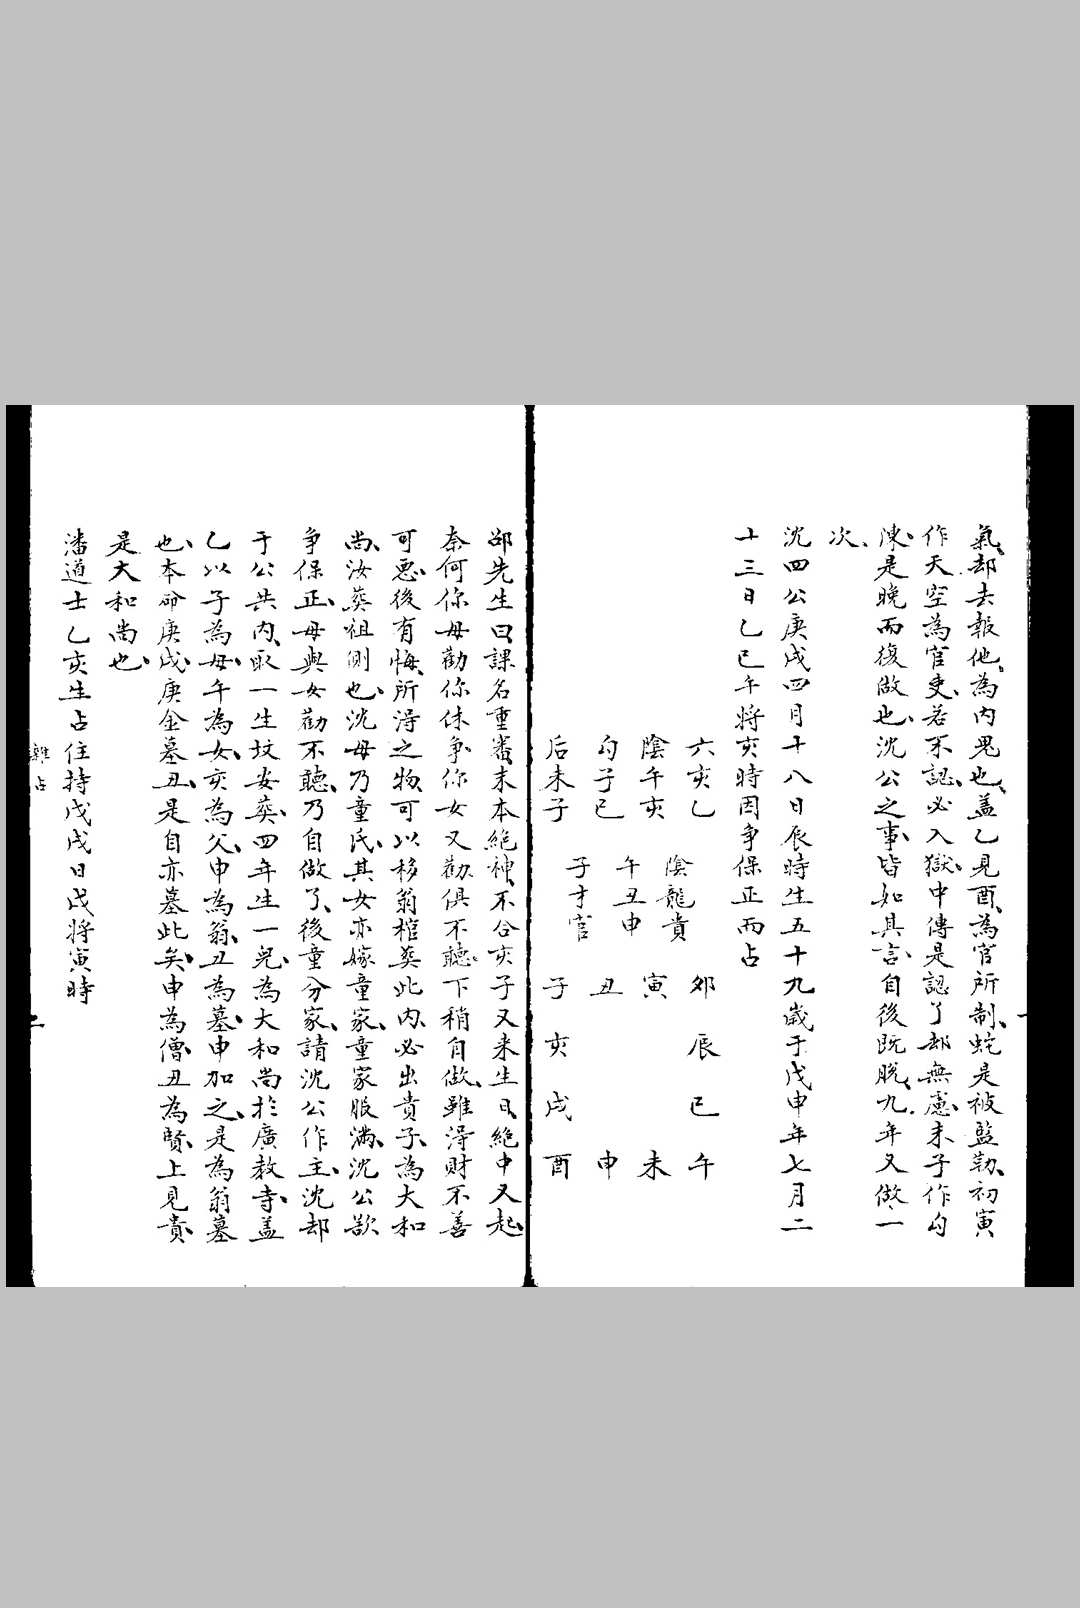 氣却去報他為内鬼也蓋乙見酉為官所制蛇是被監勒初寅
作天空為官吏若不認必入獄中傳是認了却無慮末子作勾
陳是晚而復做也沈公之事皆如其言自後既脱九年又做一
次
沈四公庚戌四月十八日辰時生五十九歲于戊申年七月二
十三日乙巳午將亥時因爭保正而占
六亥乙
陰午亥
勾子巳
后未子
陰龍貴
午丑申
子才官
卯辰巳午
寅未
丑申
子亥戌酉
邵先生曰課名重審末本絶神不合亥子又来生日絶中又起
奈何你母勸你休爭你女又勸俱不聽下稍自做雖得財不善
可惡後有悔所得之物可以移翁棺葬此内必出貴子為大和
尚汝葬祖側也沈母乃童氏其女亦嫁童家童家服滿沈公欲
爭保正母與女勸不聽乃自做了後童分家請沈公作主沈却
于公共内取一生坟安葬四年生一兒為大和尚於廣教寺蓋
乙以子為母午為女亥為父申為翁丑為墓申加之是為翁墓
也本命庚戌庚金墓丑是自亦墓此矣申為僧丑為賢上見貴
是大和尚也
潘道士乙亥生占住持戊戌日戌將寅時
雜占
二